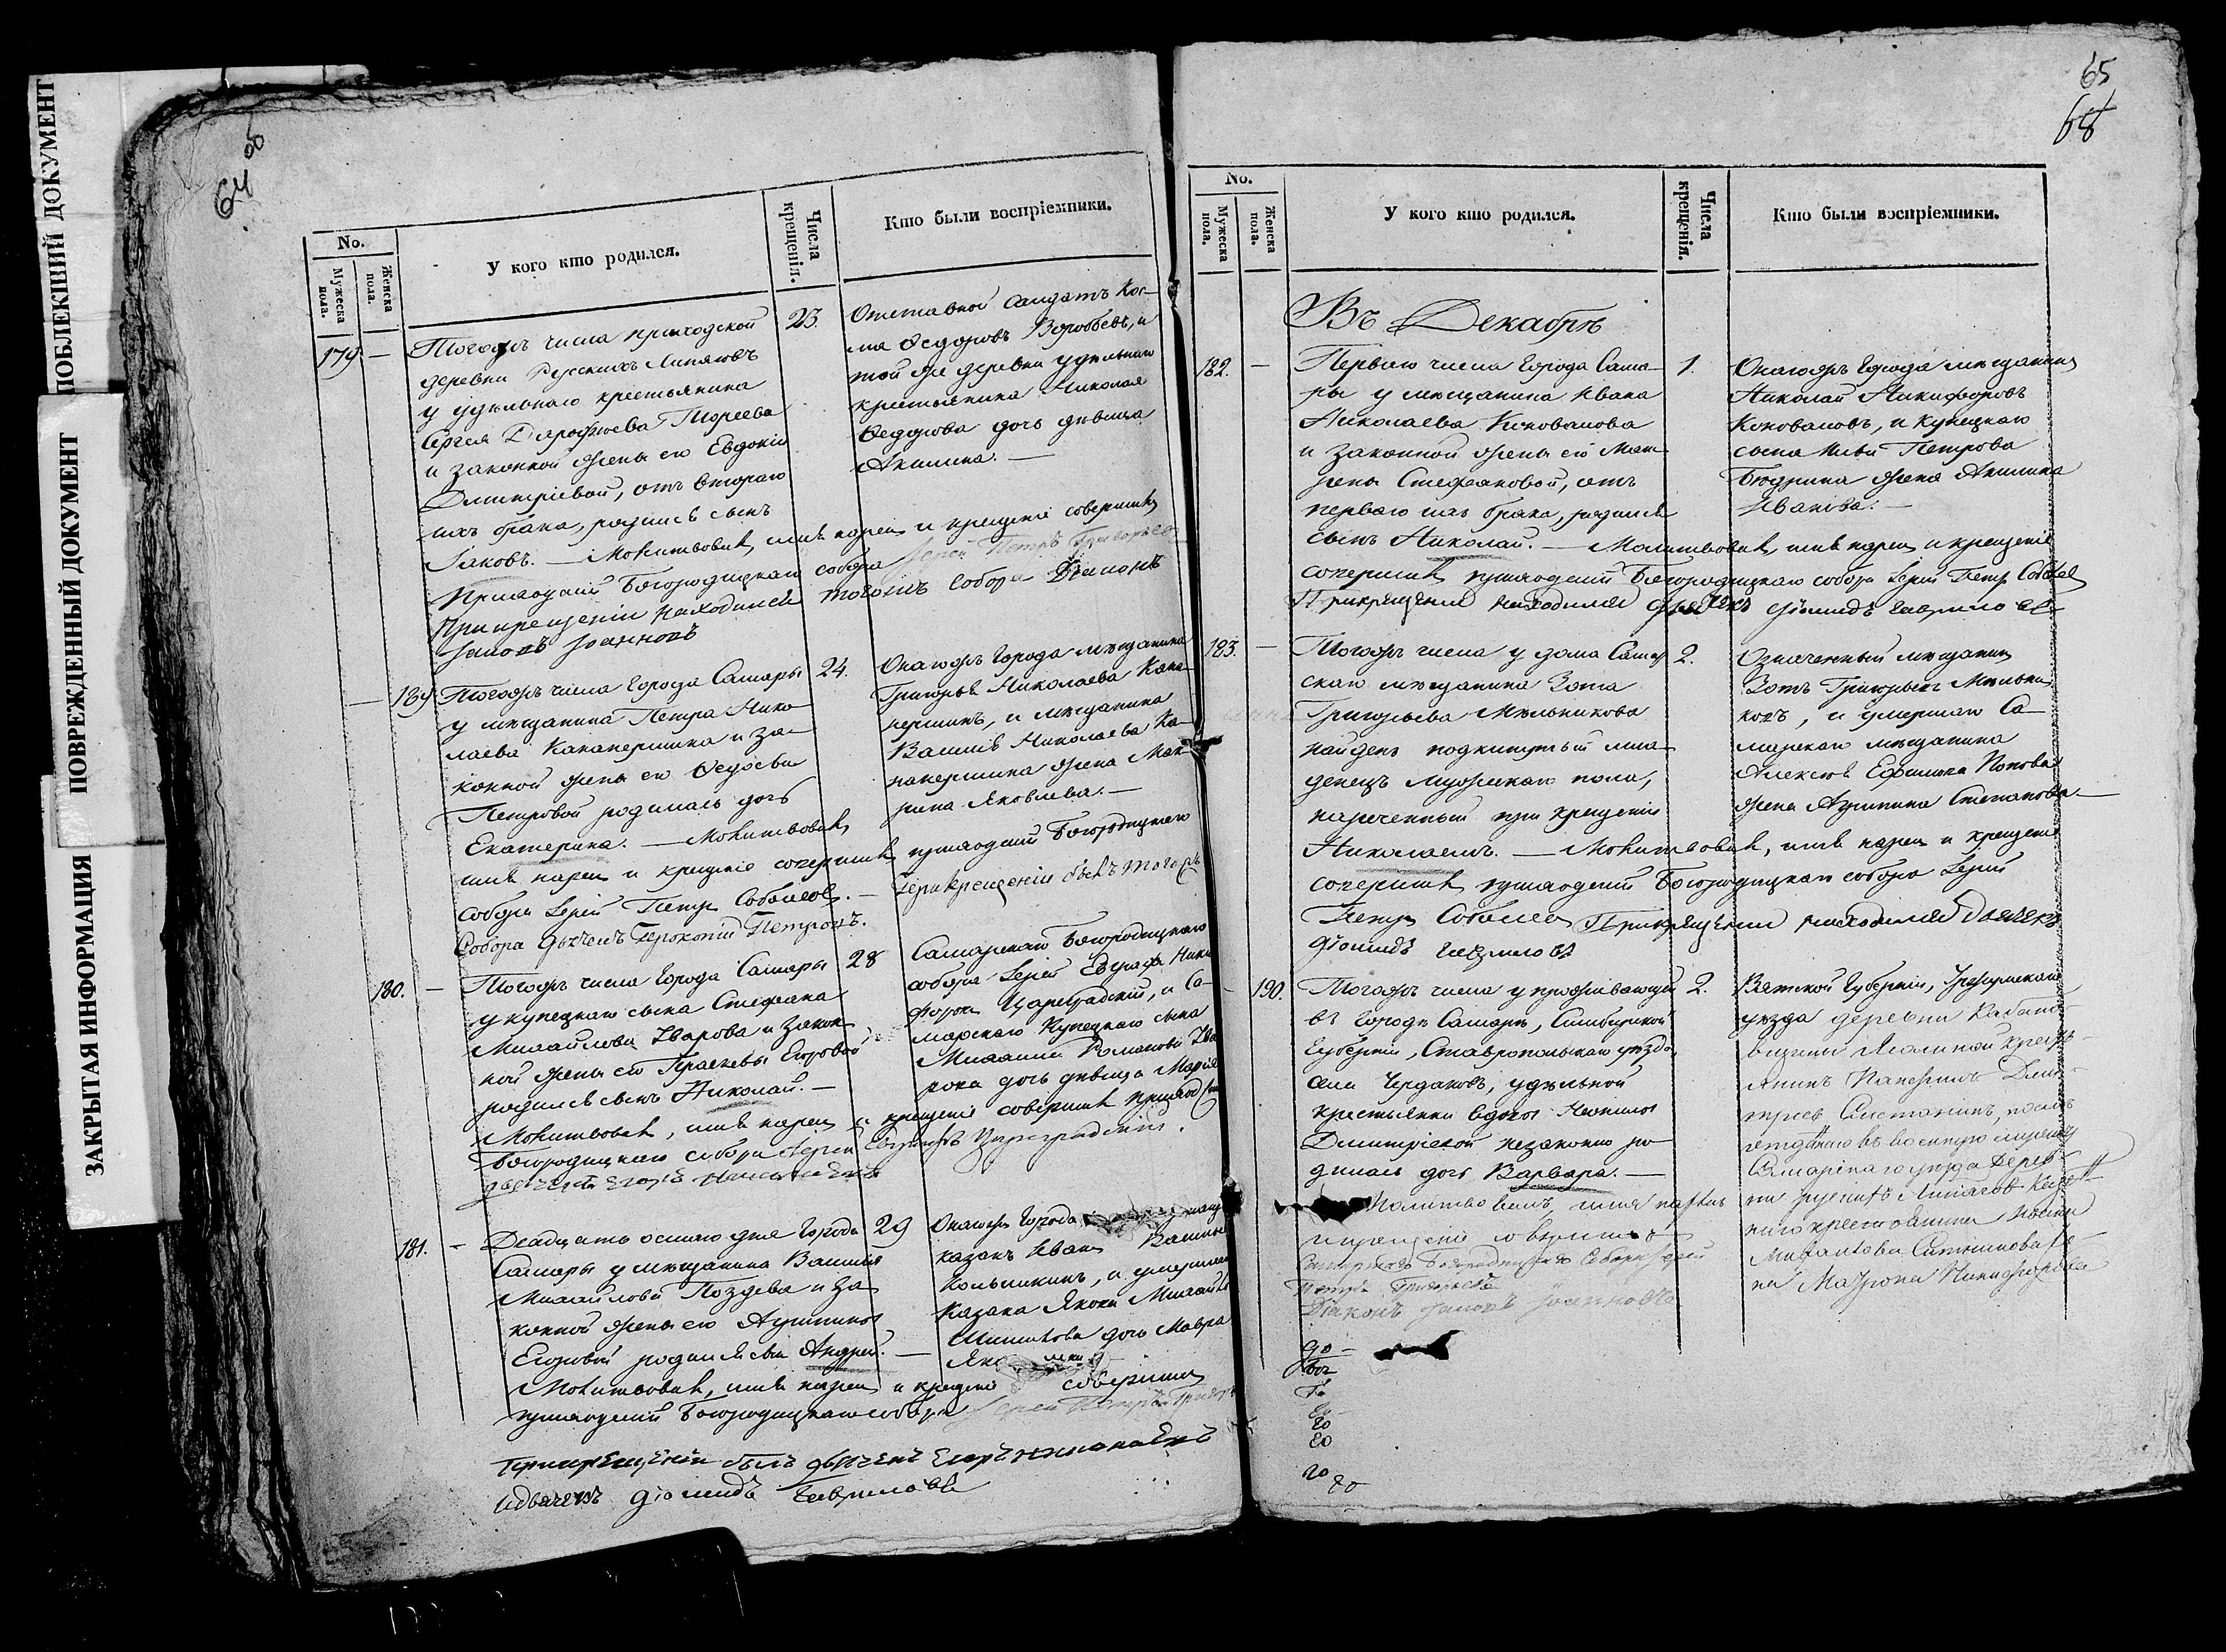 ЗАКРЫТАЯ ИНФОРМАЦИЯ
ПОВРЕЖДЕННЫЙ ДОКУМЕНТ
ПОБЛЕКШИЙ ДОКУМЕНТ
64
No.
Мужеска пола.
Женска пола.
У кого кто родился.
Числа крещенія.
Кто были воспріемники.
179 —
Тогожъ числа приходской
деревни Русскихъ Липяговъ
у удѣльнаго крестьянина
Сергея Дорофеева
и законной жены его Евдокіи
Димитріевой, отъ втораго
ихъ брака, родился сынъ
Іаковъ. — Молитвовалъ, имя нарекъ и крещеніе совершилъ
Приходскій Богородицкаго собора Іерей Петръ Григорьевъ
При крещеніи находился тогожъ собора Діаконъ
Іоанновъ
23.
Отставной солдатъ Кос-
ма Федоровъ Воробьевъ, и
той же деревни удѣльнаго
крестьянина Николая
Федорова дочь дѣвица
Акилина. —
— 189
Тогожъ числа города Самары
у мѣщанина Петра Нико-
лаева Канакершина и за-
конной жены его Федосьи
Петровой родилась дочь
Екатерина. — Молитвовалъ,
имя нарекъ и крещеніе совершилъ, приходскій Богородицкаго
собора Іерей Петръ Соболевъ. — При крещеніи былъ тогожъ
Собора дьячекъ Прокопій Петровъ.
24.
Онагожъ города мѣщанинъ
Григорьй Николаевъ Кана-
кершинъ, и мѣщанина
Василія Николаева Ка-
накершина жена Мав-
рина Яковлева. —
180. —
Тогожъ числа города Самары
у купецкаго сына Стефана
Михайлова Уварова и закон-
ной жены его Прасковьи Егоровой
родился сынъ Николай —
Молитвовалъ, имя нарекъ и крещеніе совершилъ приходскій
Богородицкаго собора Іерей Евграфъ Цареградскій.
28
Самарскаго Богородицкаго
собора Іерей Евграфъ Ники-
форовъ Цареградскій, и Са-
марскаго Купецкаго сына
Михаила Романова Ува-
рова дочь дѣвица Марія
181. —
Двадцать осьмаго дня города
Самары у мѣщанина Василія
Михайлова Поздева и за-
конной жены его Агрипины
Егоровой родился сынъ Андрей. —
Молитвовалъ, имя нарекъ и крещеніе совершилъ
приходскій Богородицкаго собора Іерей Петръ Григорьевъ
При крещеніи былъ дьячекъ Егоръ
и дьячекъ Діомидъ Гавриловъ
29
Онагожъ города
казакъ Иванъ
и умершаго
Казака Якова Михайлова
дочь Мавра
65
68
No.
Мужеска пола.
Женска пола.
У кого кто родился.
Числа крещенія.
Кто были воспріемники.
Въ Декабрѣ
182. —
Перваго числа города Сама-
ры у мѣщанина Ивана
Николаева Коновалова
и законной жены его Мат-
рены Стефановой, отъ
перваго ихъ брака, родился
сынъ Николай. — Молитвовалъ, имя нарекъ и крещеніе
совершилъ приходскій Богородицкаго собора Іерей Петръ Соболевъ
При крещеніи находился дьячекъ Діомидъ Гавриловъ
1.
Онагожъ города мѣщанинъ
Николай Никифоровъ
Коноваловъ, и купецкаго
сына Ильи Петрова
жена Акилина
Иванова. —
183. —
Тогожъ числа у дома Самар-
скаго мѣщанина Зота
Григорьева Мѣльникова
найденъ подкинутый мла-
денецъ мужескаго пола,
нареченный при крещеніи
Николаемъ. — Молитвовалъ, имя нарекъ и крещеніе
совершилъ приходскій Богородицкаго собора Іерей
Петръ Соболевъ При крещеніи находился дьячекъ
Діомидъ Гавриловъ
2.
Означенный мѣщанинъ
Зотъ Григорьевъ Мѣльни-
ковъ, и умершаго Са-
марскаго мѣщанина
Алексѣя Ефимова Попова
жена Агрипина Степанова —
— 190.
Тогожъ числа у проживающей
въ городѣ Самарѣ, Симбирской
Губерніи, Ставропольскаго уѣзда
села Чердаковъ, удѣльной
крестьянки вдовы
Димитріевой незаконно ро-
дилась дочь Варвара. —
Молитвовалъ, имя нарекъ
и крещеніе совершилъ
Богородицкаго Собора Іерей
Петръ Григорьевъ
Діаконъ Іоанновъ
2.
Вятской Губерніи, Уржумскаго
уѣзда деревни
крестъ-
янинъ
Самарскаго уѣзда дерев-
ни Русскихъ Липяговъ
крестьянина
Михайлова же-
на Матрона Никифорова